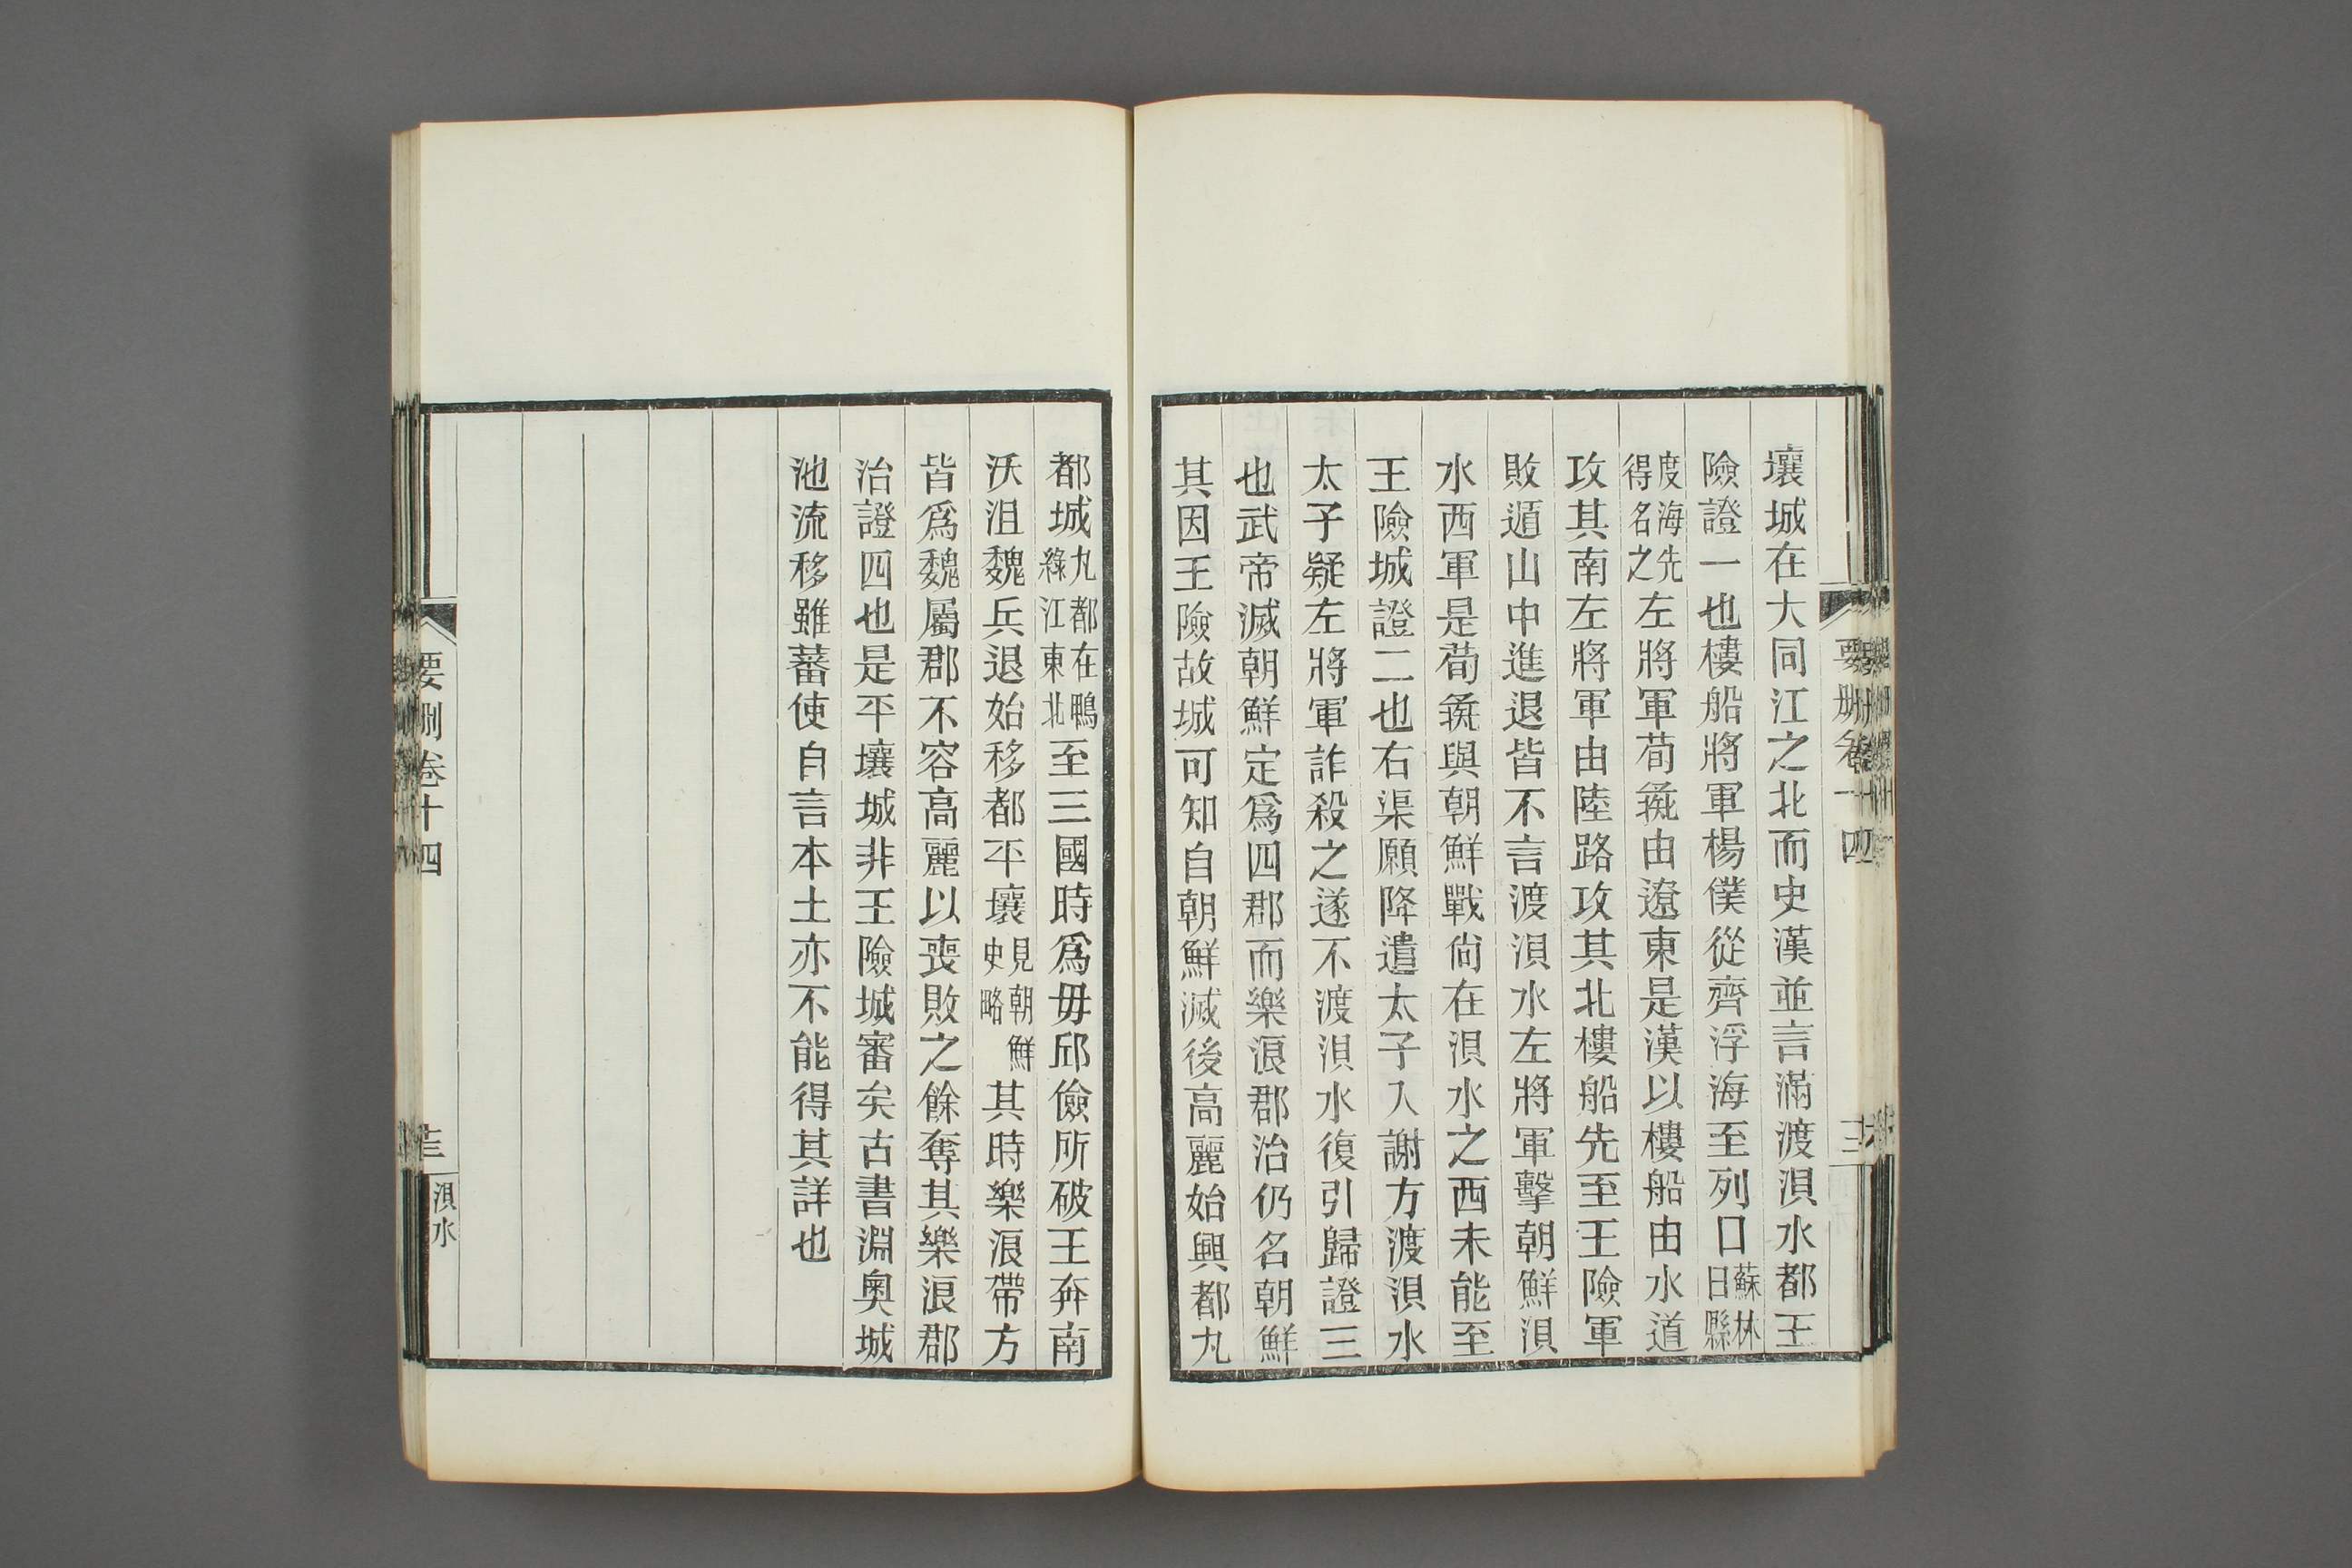 壤城在大同江之北而史漢並言滿渡浿水都王
險證一也樓船將軍楊僕從齊浮海至列口蘇林曰縣
度海先得名之左將軍荀彘由遼東是漢以樓船由水道
攻其南左將軍由陸路攻其北樓船先至王險軍
敗遁山中進退皆不言渡浿水左將軍擊朝鮮浿
水西軍是荀彘與朝鮮戰尙在浿水之西未能至
王險城證二也右渠願降遣太子入謝方渡浿水
太子疑左將軍詐殺之遂不渡浿水復引歸證三
也武帝滅朝鮮定爲四郡而樂浪郡治仍名朝鮮
其因王險故城可知自朝鮮滅後高麗始興都丸
都城丸都在鴨綠江東北至三國時爲毋邱儉所破王奔南
沃沮魏兵退始移都平壤見朝鮮史略其時樂浪帶方
皆爲魏屬郡不容高麗以喪敗之餘奪其樂浪郡
治證四也是平壤城非王險城審矣古書淵奧城
池流移雖蕃使自言本土亦不能得其詳也
要刪卷十四
浿水